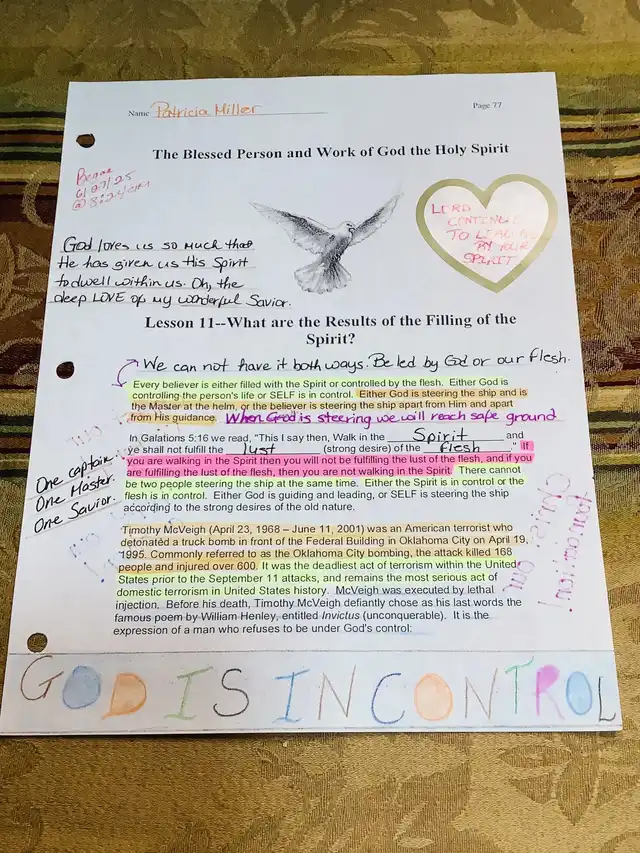 Name Patricia Miller
Page 77
The Blessed Person and Work of God the Holy Spirit
Began
6/27/25
@ 8:24am
LORD
CONTINUE
TO LEAD
BY YOUR
SPIRIT
God loves us so much that
He has given us His Spirit
to dwell within us. Oh, the
deep LOVE of my wonderful Savior.
Lesson 11--What are the Results of the Filling of the
Spirit?
We can not have it both ways. Be led by God or our flesh.
Every believer is either filled with the Spirit or controlled by the flesh. Either God is
controlling the person's life or SELF is in control. Either God is steering the ship and is
the Master at the helm, or the believer is steering the ship apart from Him and apart
from His guidance. When God is steering we will reach safe ground
In Galations 5:16 we read, "This I say then, Walk in the Spirit and
ye shall not fulfill the lust (strong desire) of the flesh." If
you are walking in the Spirit then you will not be fulfilling the lust of the flesh, and if you
are fulfilling the lust of the flesh, then you are not walking in the Spirit. There cannot
be two people steering the ship at the same time. Either the Spirit is in control or the
flesh is in control. Either God is guiding and leading, or SELF is steering the ship
according to the strong desires of the old nature.
One captain.
One Master.
One Savior.
Timothy McVeigh (April 23, 1968 – June 11, 2001) was an American terrorist who
detonated a truck bomb in front of the Federal Building in Oklahoma City on April 19,
1995. Commonly referred to as the Oklahoma City bombing, the attack killed 168
people and injured over 600. It was the deadliest act of terrorism within the United
States prior to the September 11 attacks, and remains the most serious act of
domestic terrorism in United States history. McVeigh was executed by lethal
injection. Before his death, Timothy McVeigh defiantly chose as his last words the
famous poem by William Henley, entitled Invictus (unconquerable). It is the
expression of a man who refuses to be under God's control:
GOD IS IN CONTROL